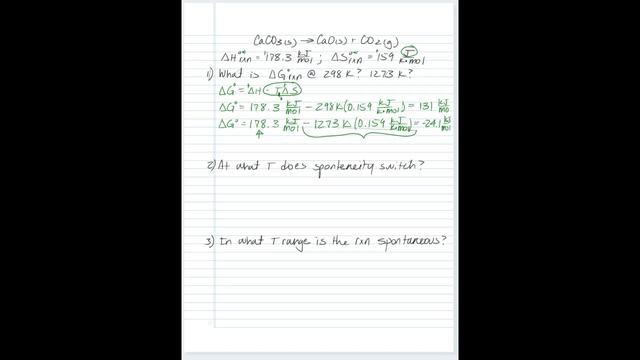 CaCO3(s) → CaO(s) + CO2(g)
ΔH°rxn = 178.3 kJ/mol ; ΔS°rxn = 159 J/K·mol
1) What is ΔG°rxn @ 298 K? 1273 K?
ΔG° = ΔH - TΔS
ΔG° = 178.3 kJ/mol - 298K(0.159 kJ/K·mol) = 131 kJ/mol
ΔG° = 178.3 kJ/mol - 1273K(0.159 kJ/K·mol) = -24.1 kJ/mol
2) At what T does sponteneity switch?
3) In what T range is the rxn spontaneous?